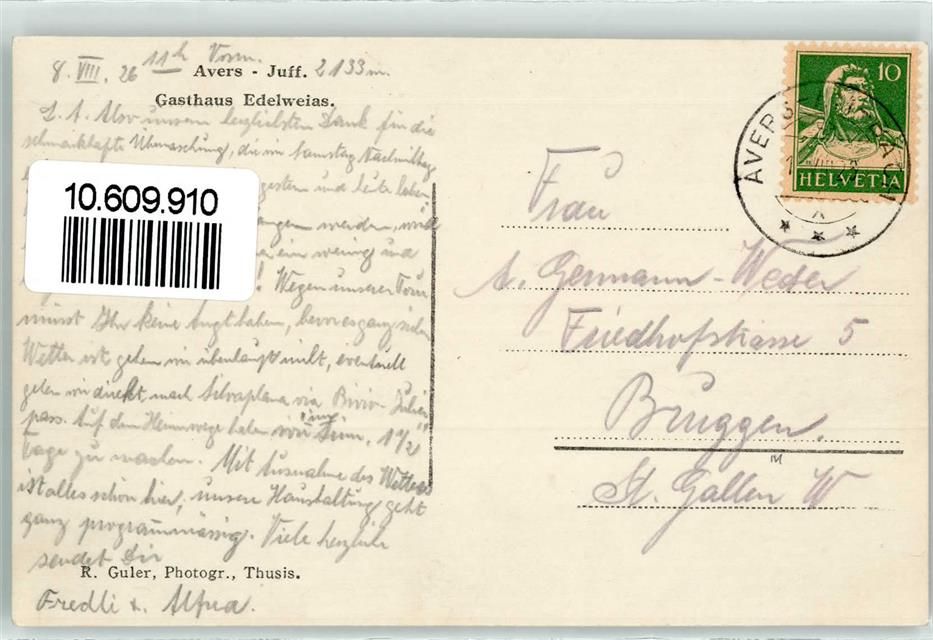 8. VIII. 26 11h Vorm.
Avers - Juff. 2133 m.
Gasthaus Edelweias.
L. A. Also unsern herzlichsten Dank für die
schmackhafte Überraschung, die im Samstag Nachmittag
gestern und heute haben
werden, wird
er ein wenig und
! Wegen unserer Tour
müsst Ihr keine Angst haben, bevor es ganz sicher
Wetter ist gehen wir überhaupt nicht, eventuell
gehen wir direkt nach Silvaplana via Bivio Julier-
pass. Auf dem Heimwege haben wir im Sinn, 1 1/2
Tage zu machen. Mit Ausnahme des Wetters
ist alles schön hier, unsere Haushaltung geht
ganz programmässig. Viele herzliche
sendet Dir
R. Guler, Photogr., Thusis.
Fredli u.
10.609.910
10
HELVETIA
AVERS
Frau
A. Germann-Weder
Friedhofstrasse 5
Bruggen.
St. Gallen W